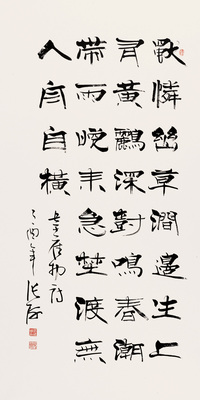 獨憐幽草澗邊生上
有黃鸝深樹鳴春潮
帶雨晚來急野渡無
人舟自橫
韋應物詩
乙酉年